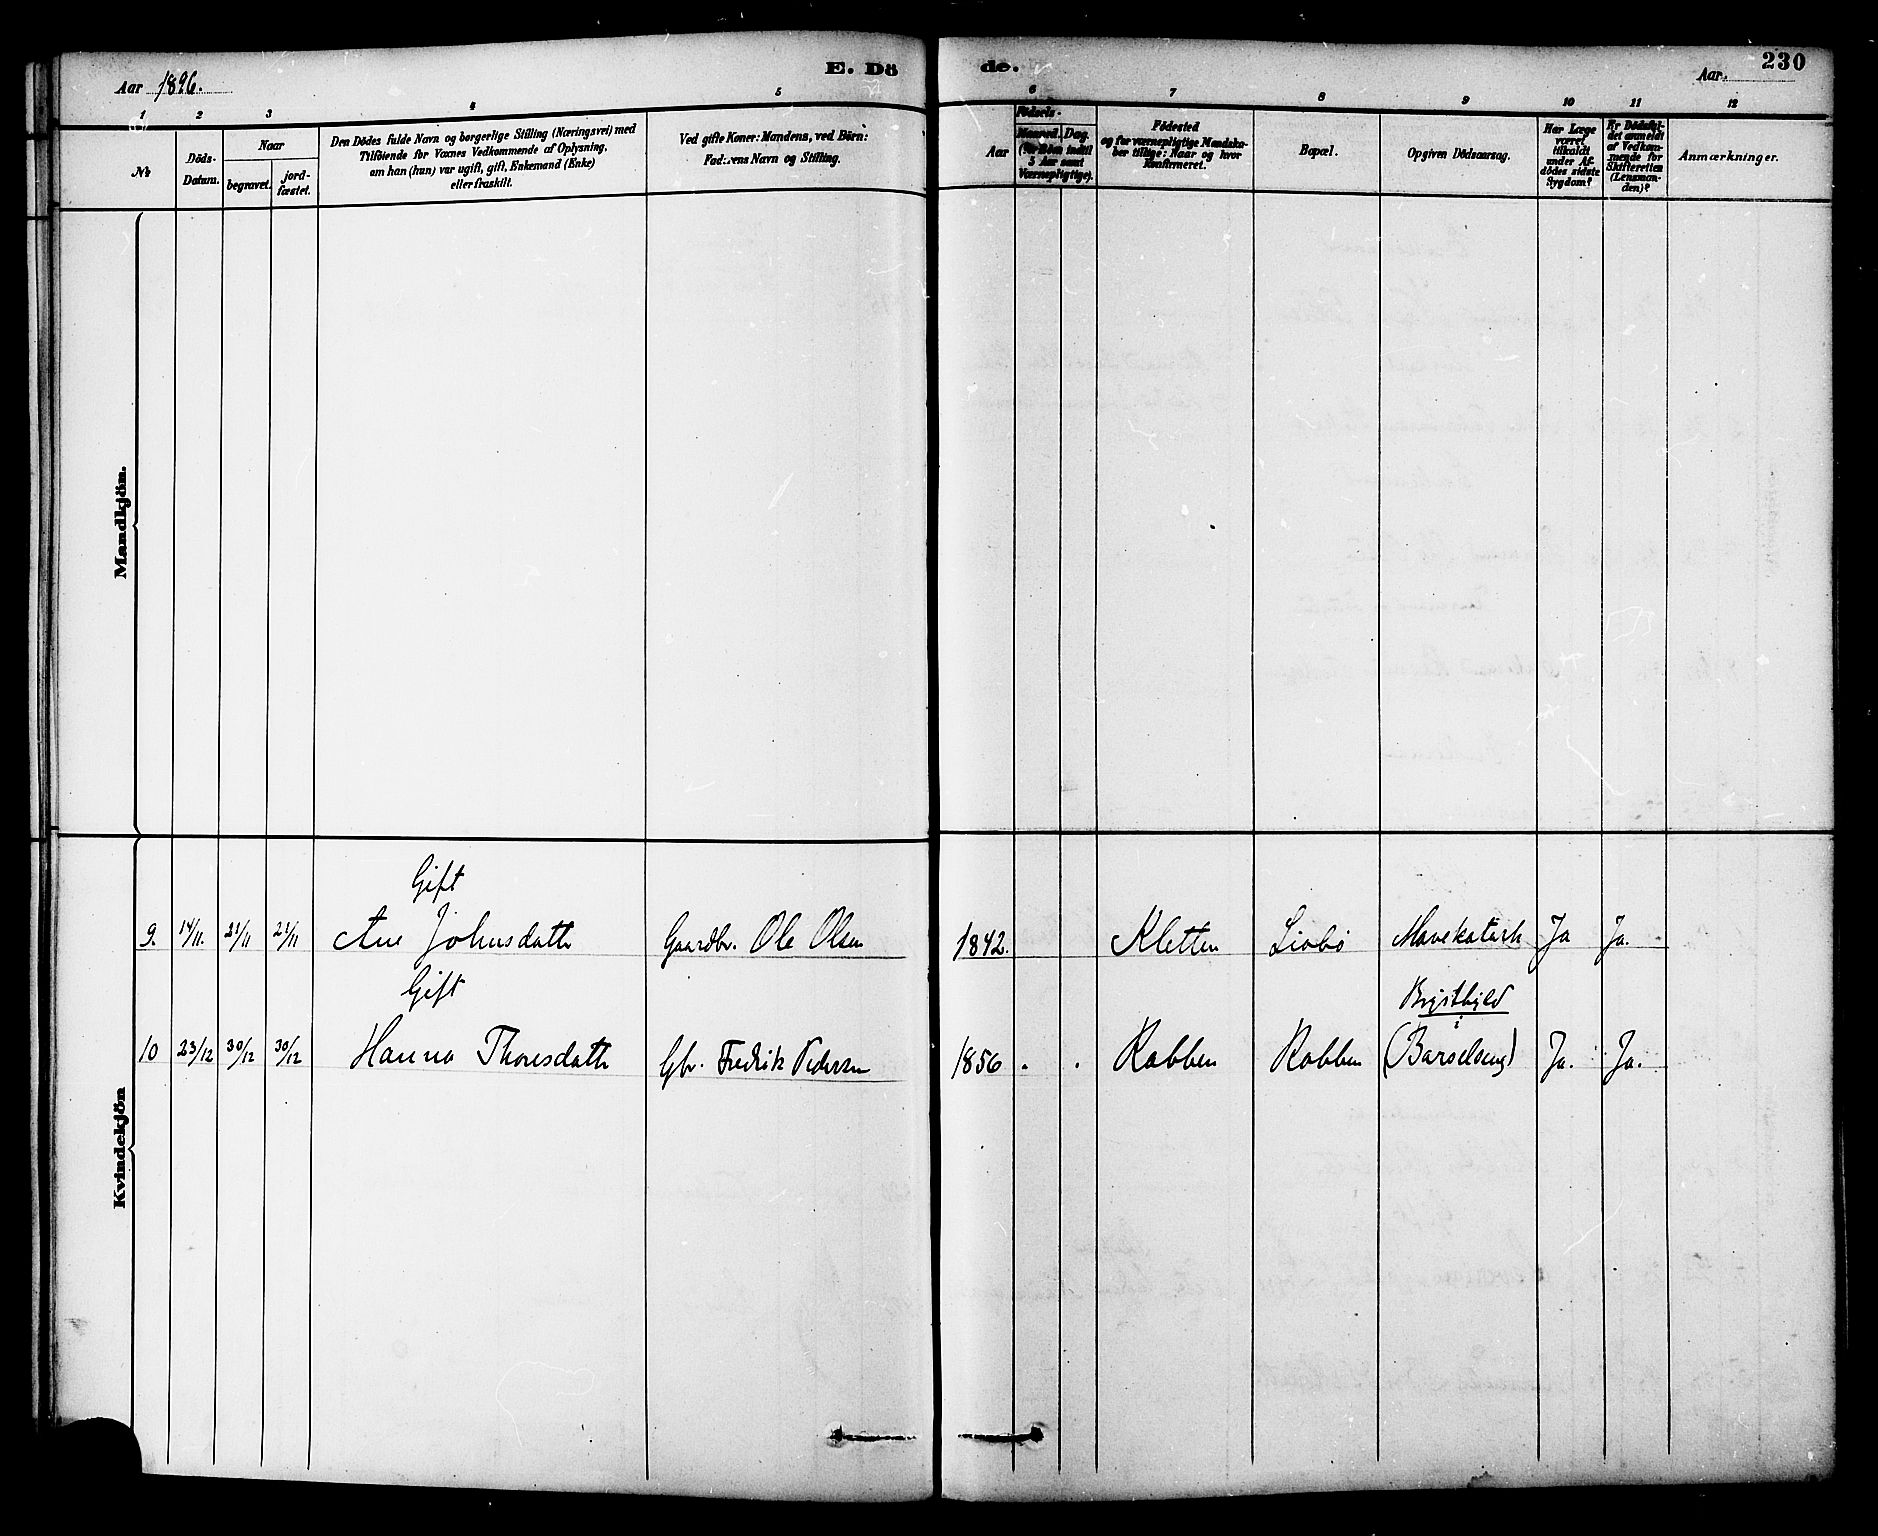 E. Dö de.
230
Aar 1896.
Aar
1 2 3 4 5 6 7 8 9 10 11 12
No
Döds-Datum.
Naar
begravet.
jord-fæstet.
Den Dödes fulde Navn og borgerlige Stilling (Næringsvei) med
Tilföiende for Voxnes Vedkommende af Oplysning,
om han (hun) var ugift, gift, Enkemand (Enke)
eller fraskilt.
Ved gifte Koner: Mandens, ved Börn:
Faderens Navn og Stilling.
Födsels-
Aar
Maaned. Dag.
(for Börn indtil
5 Aar samt
Værnepligtige).
Födested
og for værnepligtige Mandska-
ber tillige: Naar og hvor
konfirmeret.
Bopæl.
Opgiven Dödsaarsag.
Har Læge
været
tilkaldt
under Af-
dödes sidste
Sygdom?
Er Dödsfal-
det anmeldt
af Vedkom-
mende for
Skifteretten
(Lensman-
den)?
Anmærkninger.
Mandkjön.
Kvindekjön
Gift
9. 14/11. 21/11 21/11 Ane Johnsdatter Gaardbr. Ole Olsen 1842. Kletten Liabö Mavekatarh Ja Ja.
Gift
Brystbyld
10 23/12 30/12 30/12 Hanna Thoresdatter Gbr. Fredrik Pedersen 1856 . . Rabben Rabben (Barselseng) Ja. Ja.